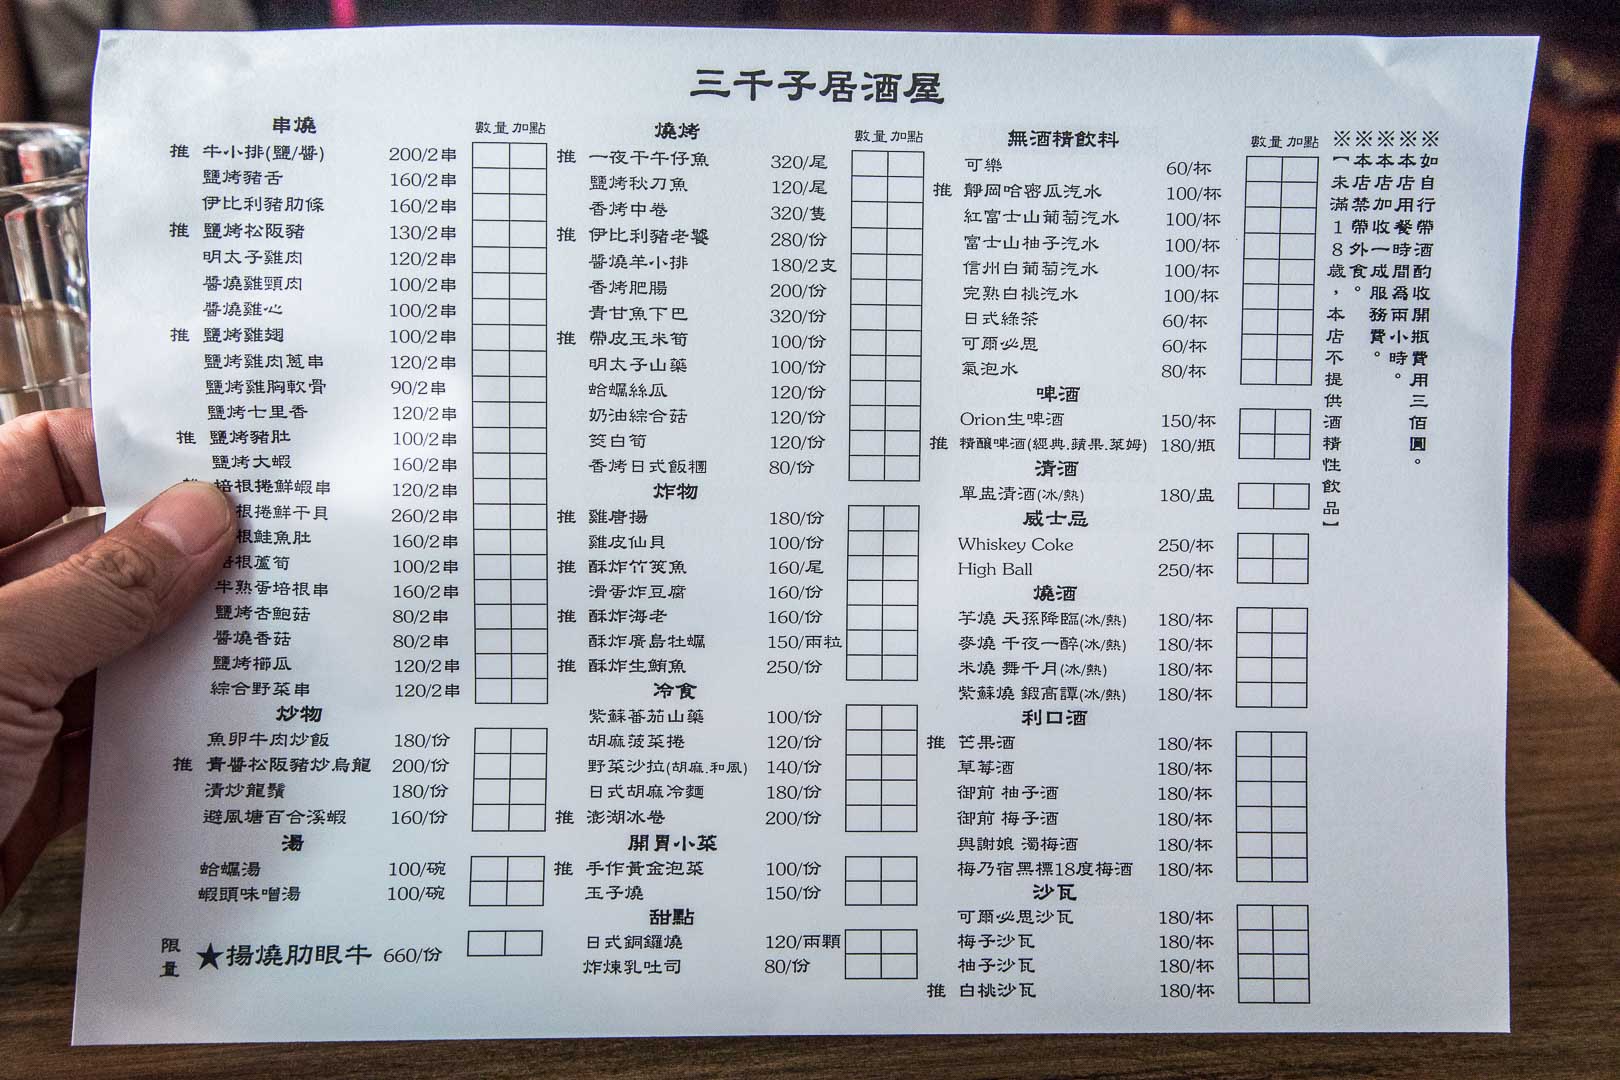 三千子居酒屋
串燒 數量 加點
推 牛小排(鹽/醬) 200/2串
鹽烤豬舌 160/2串
伊比利豬肋條 160/2串
推 鹽烤松阪豬 130/2串
明太子雞肉 120/2串
醬燒雞頸肉 100/2串
醬燒雞心 100/2串
推 鹽烤雞翅 100/2串
鹽烤雞肉蔥串 120/2串
鹽烤雞胸軟骨 90/2串
鹽烤七里香 120/2串
推 鹽烤豬肚 100/2串
鹽烤大蝦 160/2串
培根捲鮮蝦串 120/2串
根捲鮮干貝 260/2串
根鮭魚肚 160/2串
培根蘆筍 100/2串
半熟蛋培根串 160/2串
鹽烤杏鮑菇 80/2串
醬燒香菇 80/2串
鹽烤櫛瓜 120/2串
綜合野菜串 120/2串
炒物
魚卵牛肉炒飯 180/份
推 青醬松阪豬炒烏龍 200/份
清炒龍鬚 180/份
避風塘百合溪蝦 160/份
湯
蛤蠣湯 100/碗
蝦頭味噌湯 100/碗
限量 ★揚燒肋眼牛 660/份
燒烤 數量 加點
推 一夜干午仔魚 320/尾
鹽烤秋刀魚 120/尾
香烤中卷 320/隻
推 伊比利豬老饕 280/份
醬燒羊小排 180/2支
香烤肥腸 200/份
青甘魚下巴 320/份
推 帶皮玉米筍 100/份
明太子山藥 100/份
蛤蠣絲瓜 120/份
奶油綜合菇 120/份
筊白筍 120/份
香烤日式飯糰 80/份
炸物
推 雞唐揚 180/份
雞皮仙貝 100/份
推 酥炸竹筴魚 160/尾
滑蛋炸豆腐 160/份
推 酥炸海老 160/份
酥炸廣島牡蠣 150/兩粒
推 酥炸生鮪魚 250/份
冷食
紫蘇蕃茄山藥 100/份
胡麻菠菜捲 120/份
野菜沙拉(胡麻.和風) 140/份
日式胡麻冷麵 180/份
推 澎湖冰卷 200/份
開胃小菜
推 手作黃金泡菜 100/份
玉子燒 150/份
甜點
日式銅鑼燒 120/兩顆
炸煉乳吐司 80/份
無酒精飲料 數量 加點
可樂 60/杯
推 靜岡哈密瓜汽水 100/杯
紅富士山葡萄汽水 100/杯
富士山柚子汽水 100/杯
信州白葡萄汽水 100/杯
完熟白桃汽水 100/杯
日式綠茶 60/杯
可爾必思 60/杯
氣泡水 80/杯
啤酒
Orion生啤酒 150/杯
推 精釀啤酒(經典.蘋果.萊姆) 180/瓶
清酒
單盅清酒(冰/熱) 180/盅
威士忌
Whiskey Coke 250/杯
High Ball 250/杯
燒酒
芋燒 天孫降臨(冰/熱) 180/杯
麥燒 千夜一醉(冰/熱) 180/杯
米燒 舞千月(冰/熱) 180/杯
紫蘇燒 鍛高譚(冰/熱) 180/杯
利口酒
推 芒果酒 180/杯
草莓酒 180/杯
御前 柚子酒 180/杯
御前 梅子酒 180/杯
與謝娘 濁梅酒 180/杯
梅乃宿黑標18度梅酒 180/杯
沙瓦
可爾必思沙瓦 180/杯
梅子沙瓦 180/杯
柚子沙瓦 180/杯
推 白桃沙瓦 180/杯
※如自行帶酒酌收開瓶費用三佰圓。
※本店用餐時間為兩小時。
※本店加收一成服務費。
※本店禁帶外食。
※【未滿18歲，本店不提供酒精性飲品】